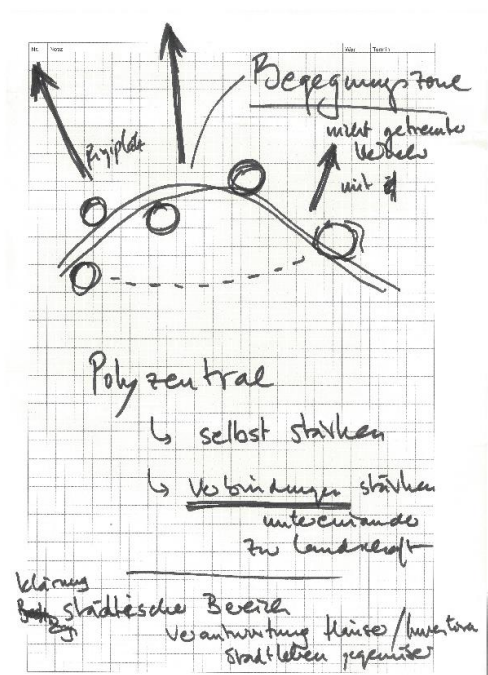 Nr.
Was
Termin
Begegnungszone
nicht getrennter
Verkehr
mit
Polyzentral
↳ selbst stärken
↳ Verbindungen stärken
untereinander
zur Landschaft
klärung
städtischer Bereich
Verantwortung Häuser / Investoren
Stadtleben gegenüber